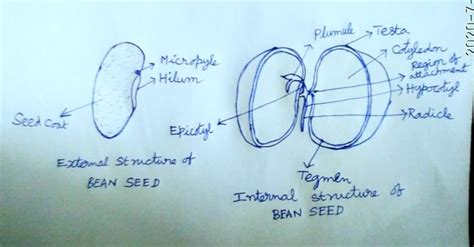 Plumule
Testa
Cotyledon
Region of
attachment
Hypocotyl
Radicle
Micropyle
Hilum
Seed Coat
Epicotyl
Tegmen
External Structure of
BEAN SEED
Internal structure of
BEAN SEED